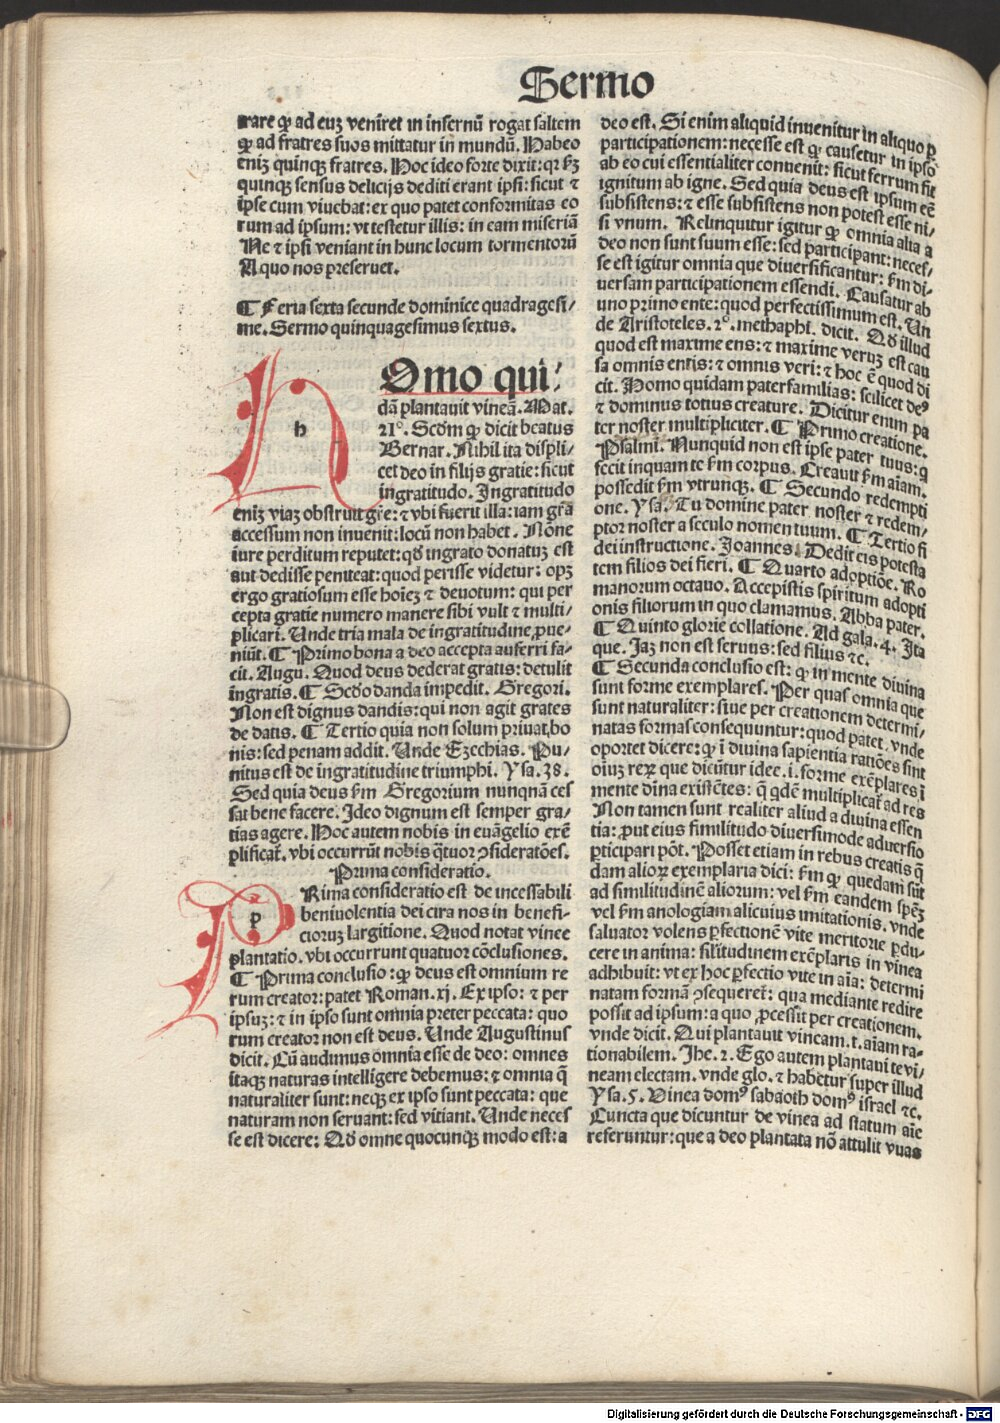 Sermo
rare ꝙ ad euꝫ veniret in infernū rogat saltem
ꝙ ad fratres suos mittatur in mundū. Habeo
eniꝫ quinqꝫ fratres. Hoc ideo forte dixit: qꝛ ẜm
quinqꝫ sensus delicijs dediti erant ipsi: sicut ⁊
ipse cum viuebat: ex quo patet conformitas eo
rum ad ipsum: vt testetur illis: in eam miseriā
Ne ⁊ ipsi veniant in hunc locum tormentorū
A quo nos preseruet.
¶ Feria sexta secunde dominice quadragesi/
me. Sermo quinquagesimus sextus.
h
Omo qui/
dā plantauit vineā. Mat.
21°. Scđm ꝙ dicit beatus
Bernar. Nihil ita displi/
cet deo in filijs gratie: sicut
ingratitudo. Ingratitudo
eniꝫ viaꝫ obstruit gr̄e: ⁊ vbi fuerit illa: iam gr̄a
accessum non inuenit: locū non habet. Nōne
iure perditum reputet: qđ ingrato donatuꝫ est
aut dedisse peniteat: quod perisse videtur: opꝫ
ergo gratiosum esse hoīeꝫ ⁊ deuotum: qui per
cepta gratie numero manere sibi vult ⁊ multi/
plicari. Unde tria mala de ingratitudine ꝓue/
niūt. ¶ Primo bona a deo accepta auferri fa/
cit. Augu. Quod deus dederat gratis: detulit
ingratis. ¶ Scđo danda impedit. Gregori.
Non est dignus dandis: qui non agit grates
de datis. ¶ Tertio quia non solum priuat bo
nis: sed penam addit. Unde Ezechias. Pu/
nitus est de ingratitudine triumphi. Ysa. 38.
Sed quia deus ẜm Gregorium nunqnā ces
sat bene facere. Ideo dignum est semper gra/
tias agere. Hoc autem nobis in euāgelio exē
plificat᷑. vbi occurrūt nobis q̄tuor ꝯsideratōes.
Prima consideratio.
p
Rima consideratio est de incessabili
beniuolentia dei cira nos in benefi/
cioruꝫ largitione. Quod notat vinee
plantatio. vbi occurrunt quatuor cōclusiones.
¶ Prima conclusio: ꝙ deus est omnium re
rum creator: patet Roman. xj. Ex ipso: ⁊ per
ipsuꝫ: ⁊ in ipso sunt omnia preter peccata: quo
rum creator non est deus. Unde Augustinus
dicit. Cū audimus omnia esse de deo: omnes
itaqꝫ naturas intelligere debemus: ⁊ omnia q̄
naturaliter sunt: neqꝫ ex ipso sunt peccata: que
naturam non seruant: sed vitiant. Unde neces
se est dicere: Qđ omne quocunqꝫ modo est: a
deo est. Si enim aliquid inuenitur in aliquo ꝑ
participationem: necesse est ꝙ causetur in ipso
ab eo cui essentialiter conuenit: sicut ferrum fit
ignitum ab igne. Sed quia deus est ipsum eē
subsistens: ⁊ esse subsistens non potest esse ni/
si vnum. Relinquitur igitur ꝙ omnia alia a
deo non sunt suum esse: sed participant: neces/
se est igitur omnia que diuersificantur: ẜm di/
uersam participationem essendi. Causatur ab
uno primo ente: quod perfectissimum est. Un
de Aristoteles. 2°. methaphi. dicit. Qđ illud
quod est maxime ens: ⁊ maxime veruꝫ est cau
sa omnis entis: ⁊ omnis veri: ⁊ hoc ē quod di
cit. Homo quidam paterfamilias: scilicet deꝰ
⁊ dominus totius creature. Dicitur enim pa
ter noster multipliciter. ¶ Primo creatione.
Psalmi. Nunquid non est ipse pater tuus: q
fecit inquam te ẜm corpus. Creauit ẜm aīam.
possedit ẜm vtrunqꝫ. ¶ Secundo redempti
one. Ysa. Tu domine pater noster ⁊ redem/
ptor noster a seculo nomen tuum. ¶ Tertio fi
dei instructione. Joannes. Dedit eis potesta
tem filios dei fieri. ¶ Quarto adoptiōe. Ro
manorum octauo. Accepistis spiritum adopti
onis filiorum in quo clamamus. Abba pater.
¶ Quinto glorie collatione. Ad gala. 4. Ita
que. Jaꝫ non est seruus: sed filius ⁊c.
¶ Secunda conclusio est: ꝙ in mente diuina
sunt forme exemplares. Per quas omnia que
sunt naturaliter: siue per creationem determi/
natas formas consequuntur: quod patet. vnde
oportet dicere: ꝙ ī diuina sapientia ratiōes sint
oīuꝫ reꝝ que dicūtur idee. i. forme exēplares ī
mente diīna existētes: q̄ qdē multiplicar̄t ad res
Non tamen sunt realiter aliud a diuina essen
tia: ꝓut eius similitudo diuersimode aduersio
ꝑticipari pōt. Posset etiam in rebus creatis q̄
dam alioꝝ exemplaria dici: ẜm ꝙ quedam sūt
ad similitudinē aliorum: vel ẜm eandem speꝫ
vel ẜm anologiam alicuius imitationis. vnde
saluator volens ꝑfectionē vite meritorie ꝑdu/
cere in anima: silitudinem exēplaris in vinea
adhibuit: vt ex hoc ꝑfectio vite in aīa: determi
natam formā ꝯsequeret᷑: qua mediante redire
possit ad ipsum: a quo ꝓcessit per creationem.
vnde dicit. Qui plantauit vineam. i. aīam ra/
tionabilem. Jhe. 2. Ego autem plantaui te vi/
neam electam. vnde glo. ⁊ habetur super illud
Ysa. 5. Vinea domꝰ sabaoth domꝰ israel ⁊c.
Cuncta que dicuntur de vinea ad statum aīe
referuntur: que a deo plantata nō attulit vuas
Digitalisierung gefördert durch die Deutsche Forschungsgemeinschaft - DFG